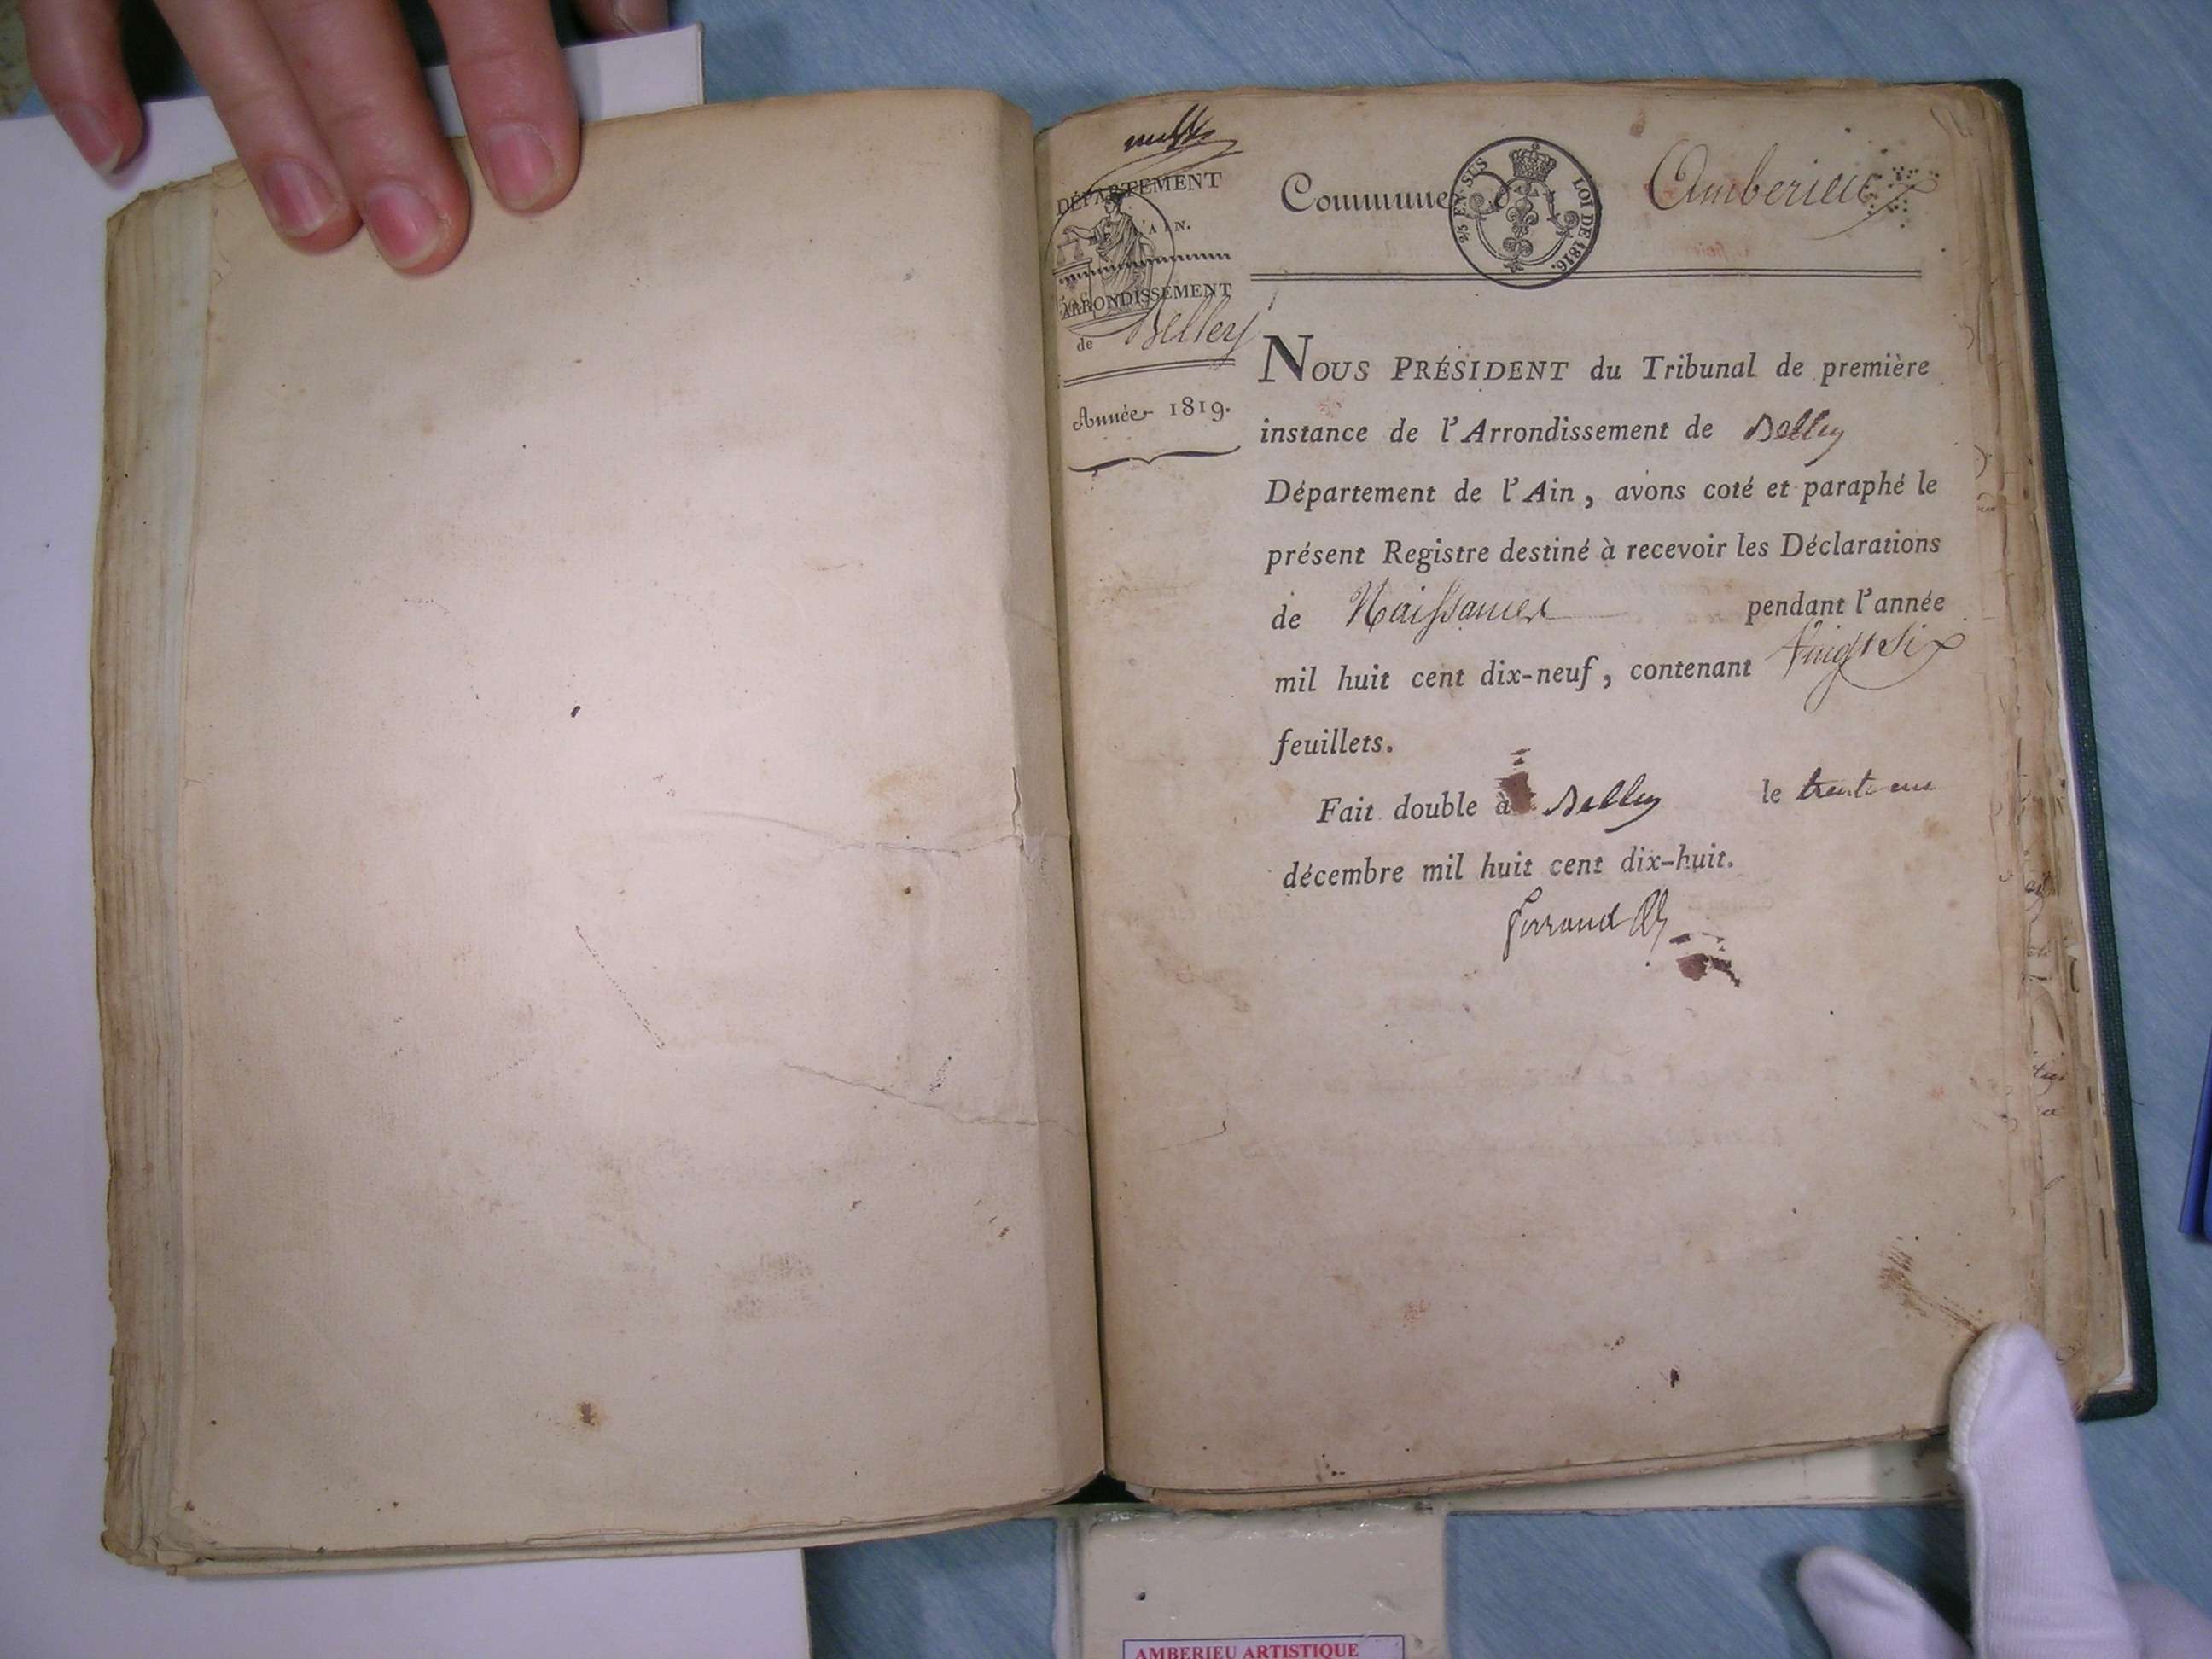 DÉPARTEMENT
DE L'AIN.
ARRONDISSEMENT
de Belley
Année 1819.
Commune d Amberieux
2/5 EN SUS LOI DE 1816.
NOUS PRÉSIDENT du Tribunal de première
instance de l'Arrondissement de Belley
Département de l'Ain, avons coté et paraphé le
présent Registre destiné à recevoir les Déclarations
de Naissances pendant l'année
mil huit cent dix-neuf, contenant Vingt Six
feuillets.
Fait double à Belley le trente un
décembre mil huit cent dix-huit.
AMBERIEU ARTISTIQUE